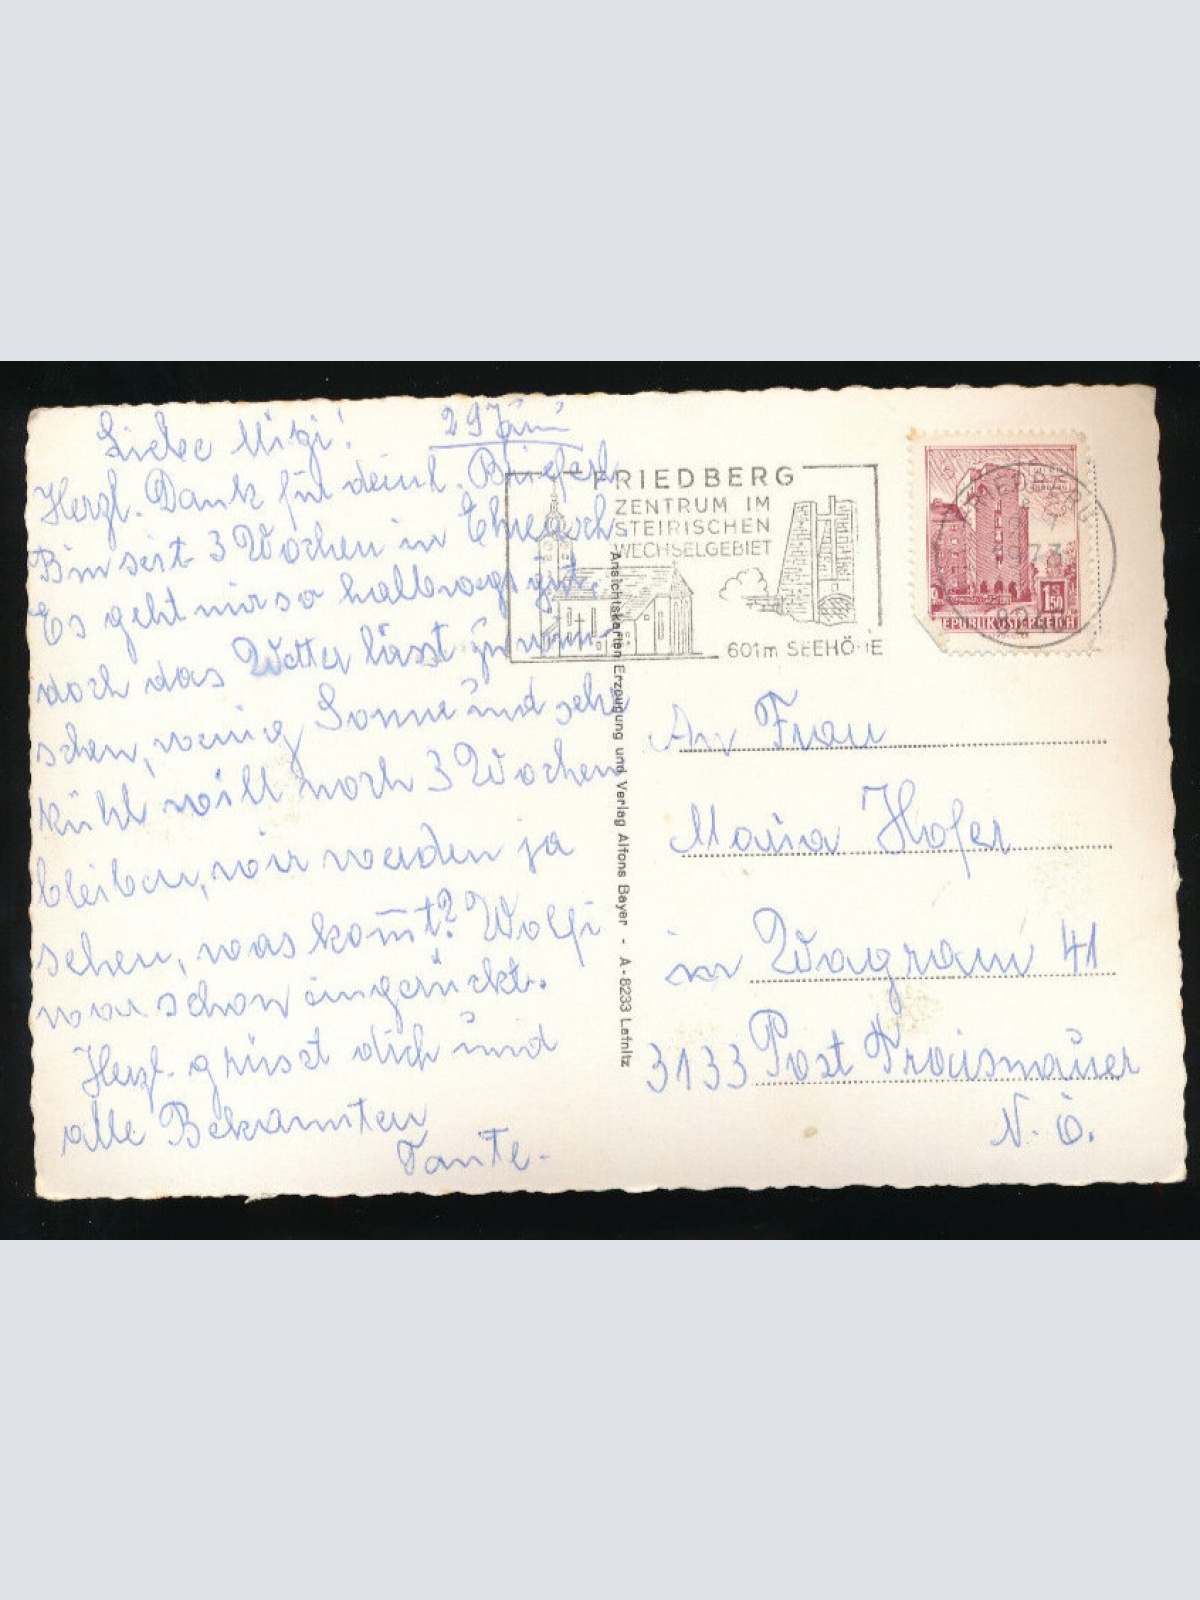 Liebe Mitzi! 29 Juni
Herzl. Dank für deinl. Brieferl.
Bin seit 3 Wochen in
Es geht mir so halbwegs gut,
doch das Wetter lässt zu wün-
schen, wenig Sonne und sehr
kühl will noch 3 Wochen
bleiben, wir werden ja
sehen, was kom̄t? Wolfi
war schon eingerückt.
Herzl. grüsst dich und
alle Bekannten
Tante.
FRIEDBERG
ZENTRUM IM
STEIRISCHEN
WECHSELGEBIET
601m SEEHÖHE
Ansichtskarten Erzeugung und Verlag Alfons Bayer - A-8233 Lafnitz
FRIEDBERG
1973
1.50
REPUBLIK ÖSTERREICH
An Frau
Maria Hofer
in Wagram 41
3133 Post Traismauer
N.Ö.